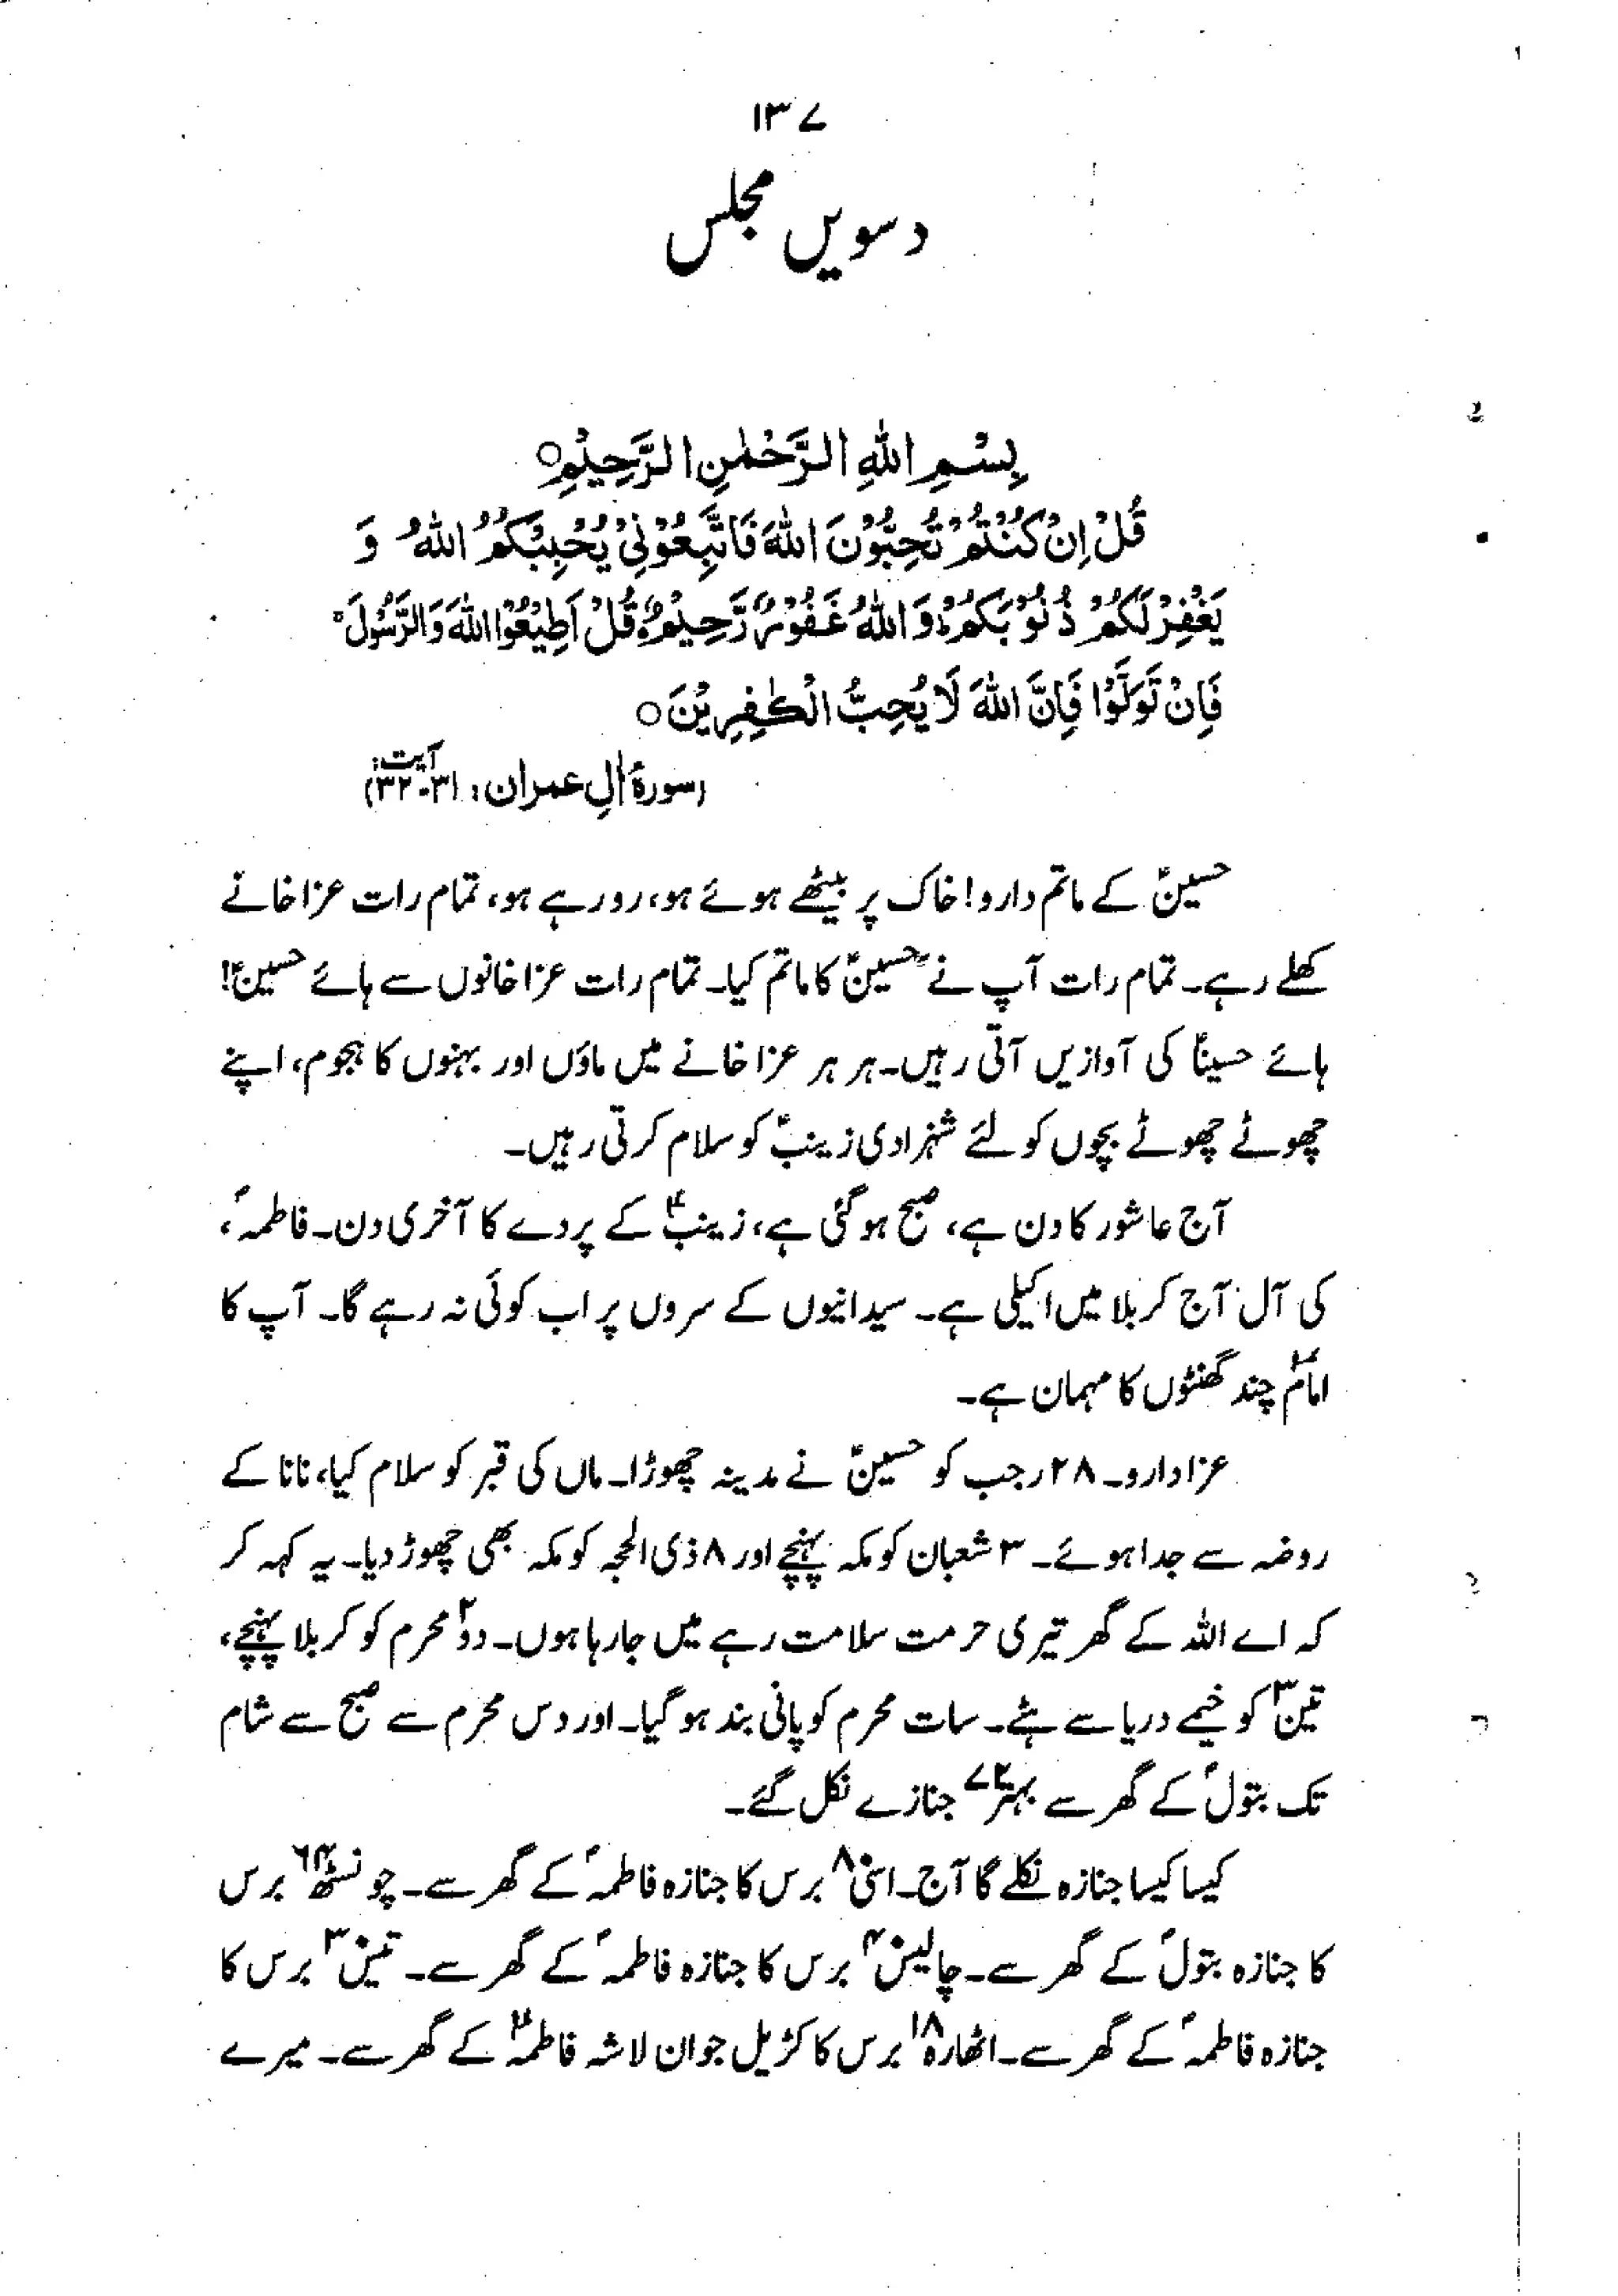 ۱۳۷
دسویں مجلس
بِسْمِ اللهِ الرَّحْمٰنِ الرَّحِیْمِ○
قُلْ اِنْ كُنْتُمْ تُحِبُّوْنَ اللهَ فَاتَّبِعُوْنِیْ یُحْبِبْكُمُ اللهُ وَ
یَغْفِرْ لَكُمْ ذُنُوْبَكُمْ ؕ وَ اللهُ غَفُوْرٌ رَّحِیْمٌ○ قُلْ اَطِیْعُوا اللهَ وَ الرَّسُوْلَ ۚ
فَاِنْ تَوَلَّوْا فَاِنَّ اللهَ لَا یُحِبُّ الْكٰفِرِیْنَ○
(سورۂ اٰلِ عمران: آیت: ۳۱-۳۲)
حسینؑ کے ماتم دارو! خاک پر بیٹھے ہوئے ہو، رو رہے ہو، تمام رات عزا خانے
کھلے رہے۔ تمام رات آپ نے حسینؑ کا ماتم کیا۔ تمام رات عزا خانوں سے ہائے حسینؑ!
ہائے حسیناؑ کی آوازیں آتی رہیں۔ ہر ہر عزا خانے میں ماؤں اور بہنوں کا ہجوم، اپنے
چھوٹے چھوٹے بچوں کو لئے شہزادی زینبؑ کو سلام کرتی رہیں۔
آج عاشور کا دن ہے، صبح ہو گئی ہے، زینبؑ کے پردے کا آخری دن۔ فاطمہؑ،
کی آل آج کربلا میں اکیلی ہے۔ سیدانیوں کے سروں پر اب کوئی نہ رہے گا۔ آپ کا
امامؑ چند گھنٹوں کا مہمان ہے۔
عزا دارو۔ ۲۸ رجب کو حسینؑ نے مدینہ چھوڑا۔ ماں کی قبر کو سلام کیا، نانا کے
روضہ سے جدا ہوئے۔ ۳ شعبان کو مکہ پہنچے اور ۸ ذی الحجہ کو مکہ بھی چھوڑ دیا۔ یہ کہہ کر
کہ اے اللہ کے گھر تیری حرمت سلامت رہے میں جا رہا ہوں۔ دو۲ محرم کو کربلا پہنچے،
تین۳ کو خیمے دریا سے ہٹے۔ سات محرم کو پانی بند ہو گیا۔ اور دس محرم سے صبح سے شام
تک بتولؑ کے گھر سے بہتر۷۲ جنازے نکل گئے۔
کیسا کیسا جنازہ نکلے گا آج۔ اسّی۸۰ برس کا جنازہ فاطمہؑ کے گھر سے۔ چونسٹھ۶۴ برس
کا جنازہ بتولؑ کے گھر سے۔ چالیس۴۰ برس کا جنازہ فاطمہؑ کے گھر سے۔ تیس۳۰ برس کا
جنازہ فاطمہؑ کے گھر سے۔ اٹھارہ۱۸ برس کا کڑیل جوان لاشہ فاطمہؑ کے گھر سے۔ میرے